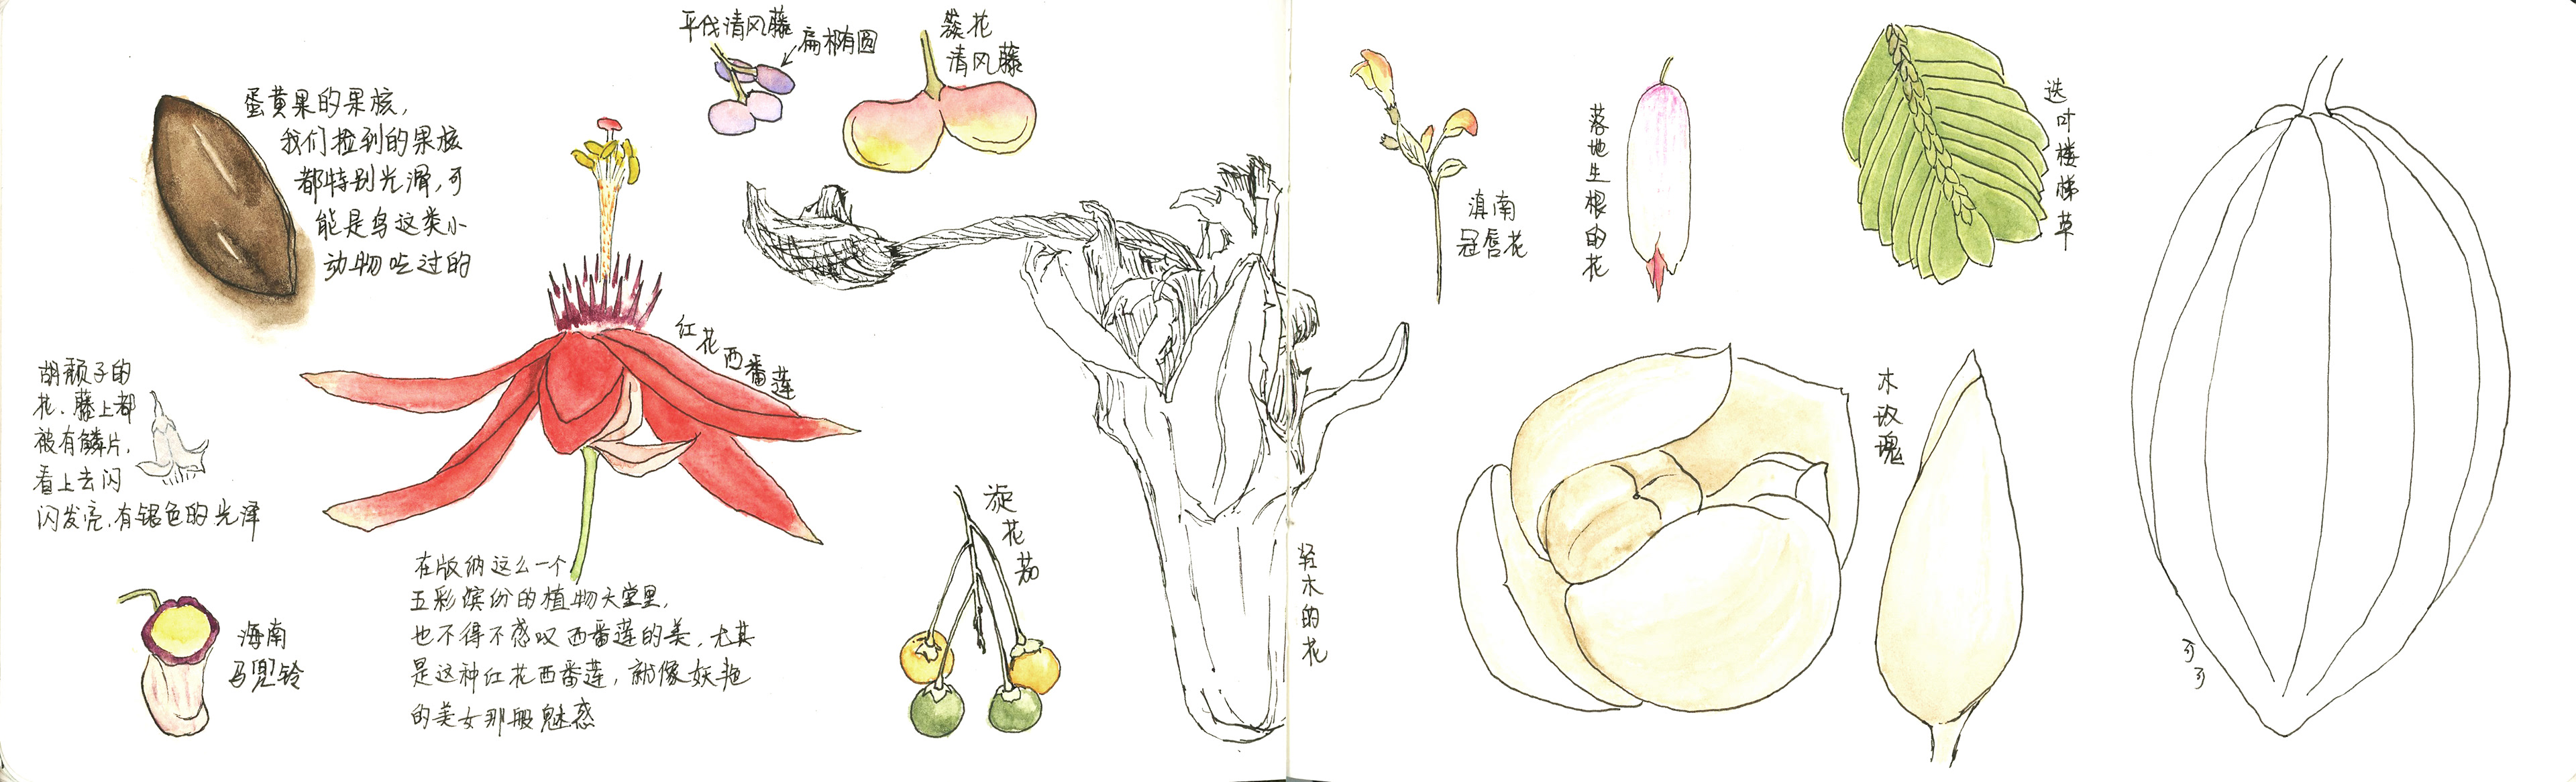 蛋黄果的果核，
我们捡到的果核
都特别光滑，可
能是鸟这类小
动物吃过的
平伐清风藤
扁椭圆
簇花
清风藤
红花西番莲
胡颓子的
花、藤上都
被有鳞片，
看上去闪
闪发亮，有银色的光泽
海南
马兜铃
在版纳这么一个
五彩缤纷的植物天堂里，
也不得不感叹西番莲的美，尤其
是这种红花西番莲，就像妖艳
的美女那般魅惑
旋花茄
轻木的花
滇南
冠唇花
落地生根的花
迭叶楼梯草
木玫瑰
可可